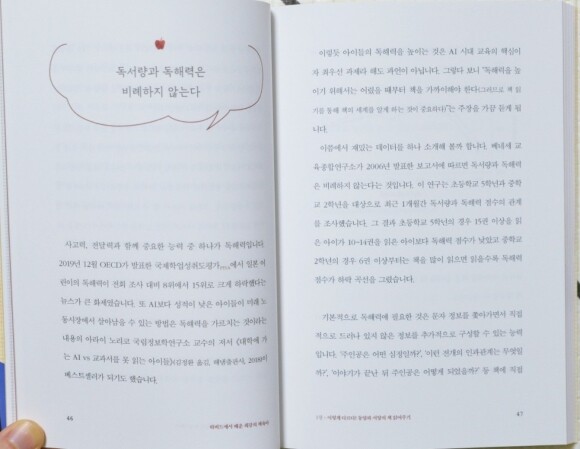 독서량과 독해력은
비례하지 않는다
사고력, 전달력과 함께 중요한 능력 중 하나가 독해력입니다.
2019년 12월 OECD가 발표한 국제학업성취도평가PISA에서 일본 어
린이의 독해력이 전회 조사 대비 8위에서 15위로 크게 하락했다는
뉴스가 큰 화제였습니다. 또 AI보다 성적이 낮은 아이들이 미래 노
동시장에서 살아남을 수 있는 방법은 독해력을 가르치는 것이라는
내용의 아라이 노리코 국립정보학연구소 교수의 저서 《대학에 가
는 AI vs 교과서를 못 읽는 아이들》(김정환 옮김, 해냄출판사, 2018)이
베스트셀러가 되기도 했습니다.
46
하버드에서 배운 최강의 책육아
이렇듯 아이들의 독해력을 높이는 것은 AI 시대 교육의 핵심이
자 최우선 과제라 해도 과언이 아닙니다. 그렇다 보니 "독해력을 높
이기 위해서는 어렸을 때부터 책을 가까이해야 한다(그러므로 책 읽
기를 통해 책의 세계를 알게 하는 것이 중요하다)"는 주장을 가끔 듣게 됩
니다.
이쯤에서 재밌는 데이터를 하나 소개해 볼까 합니다. 베네세 교
육종합연구소가 2006년 발표한 보고서에 따르면 독서량과 독해력
은 비례하지 않는다는 것입니다. 이 연구는 초등학교 5학년과 중학
교 2학년을 대상으로 최근 1개월간 독서량과 독해력 점수의 관계
를 조사했습니다. 그 결과 초등학교 5학년의 경우 15권 이상을 읽
은 아이가 10~14권을 읽은 아이보다 독해력 점수가 낮았고 중학교
2학년의 경우 6권 이상부터는 책을 많이 읽으면 읽을수록 독해력
점수가 하락 곡선을 그렸습니다.
기본적으로 독해력에 필요한 것은 문자 정보를 쫓아가면서 직접
적으로 드러나 있지 않은 정보를 추가적으로 구성할 수 있는 능력
입니다. '주인공은 어떤 심정일까?', '이런 전개의 인과관계는 무엇일
까?', '이야기가 끝난 뒤 주인공은 어떻게 되었을까?' 등 책에 직접
1장 · 어떻게 다가오
47